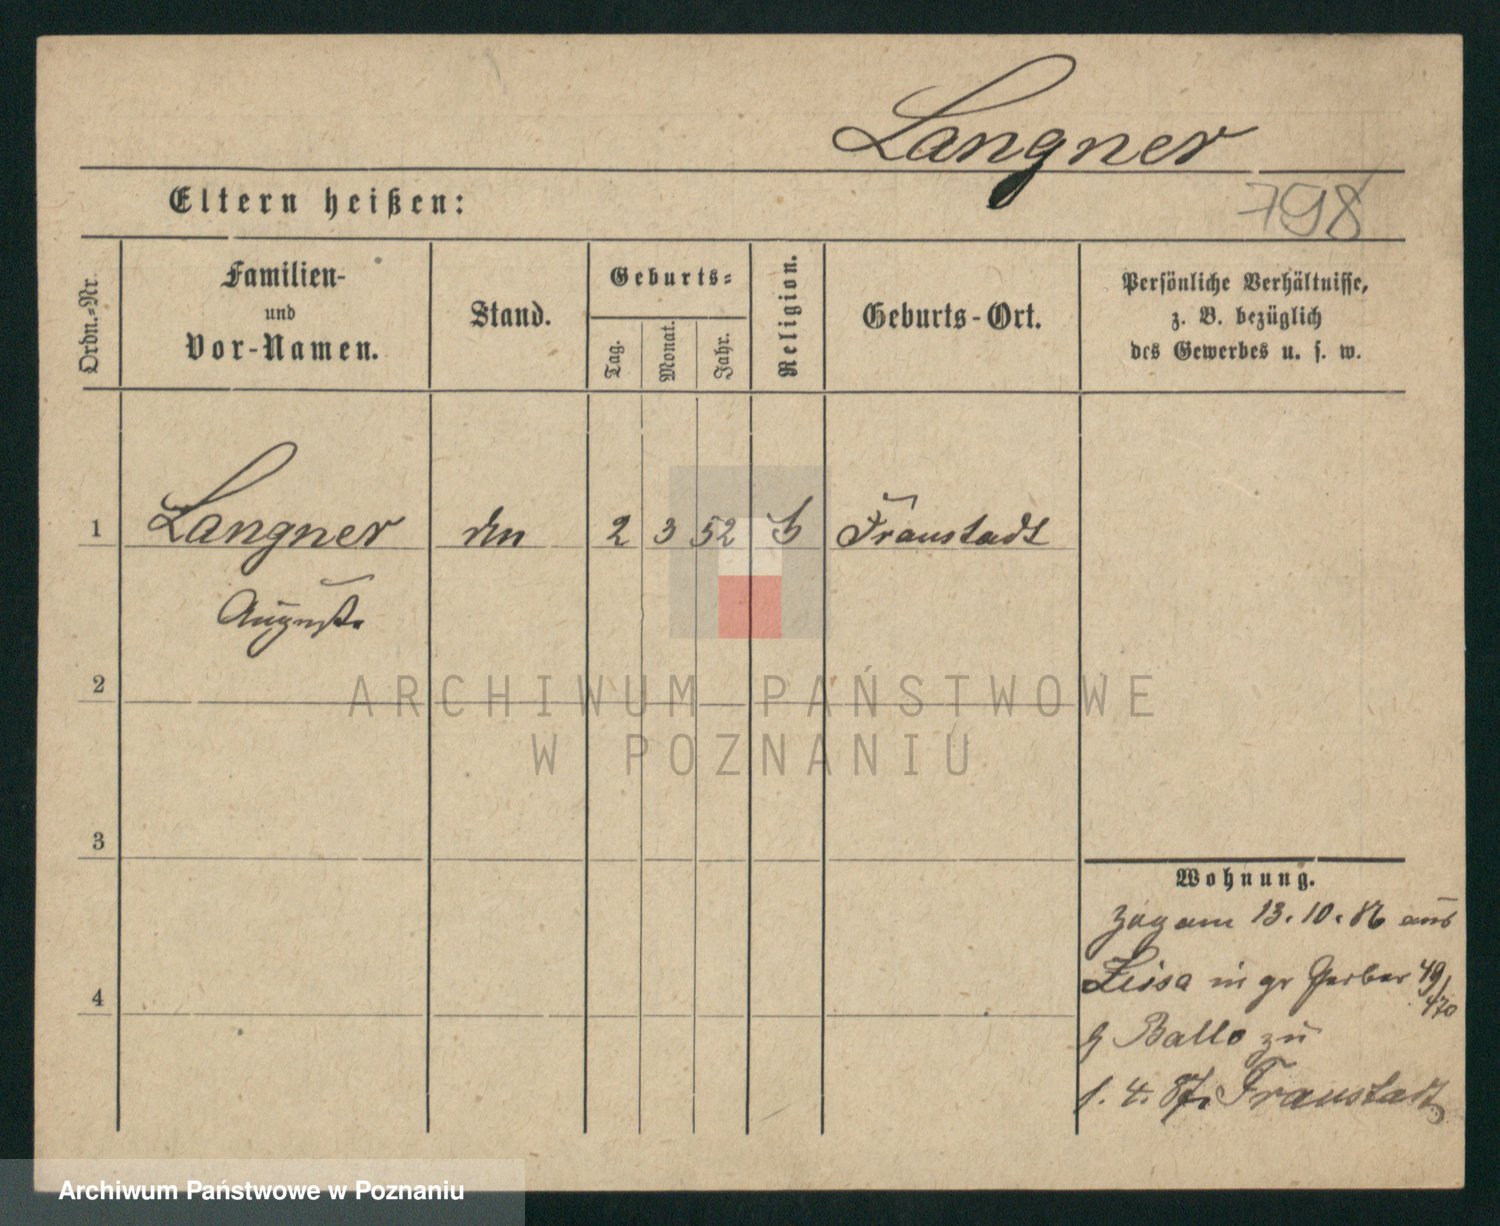 Langner
798
Eltern heißen:
Ordn.-Nr.
Familien-
und
Vor-Namen.
Stand.
Geburts-
Tag.
Monat.
Jahr.
Religion.
Geburts-Ort.
Persönliche Verhältnisse,
z. B. bezüglich
des Gewerbes u. s. w.
1 Langner 2 3 52 Fraustadt
August
2
ARCHIWUM PAŃSTWOWE
W POZNANIU
3
4
Wohnung.
zog am 13.10.86 aus
Lissa in gr Gerber 49/
470
Ballo zu
1.4.87. Fraustadt
Archiwum Państwowe w Poznaniu